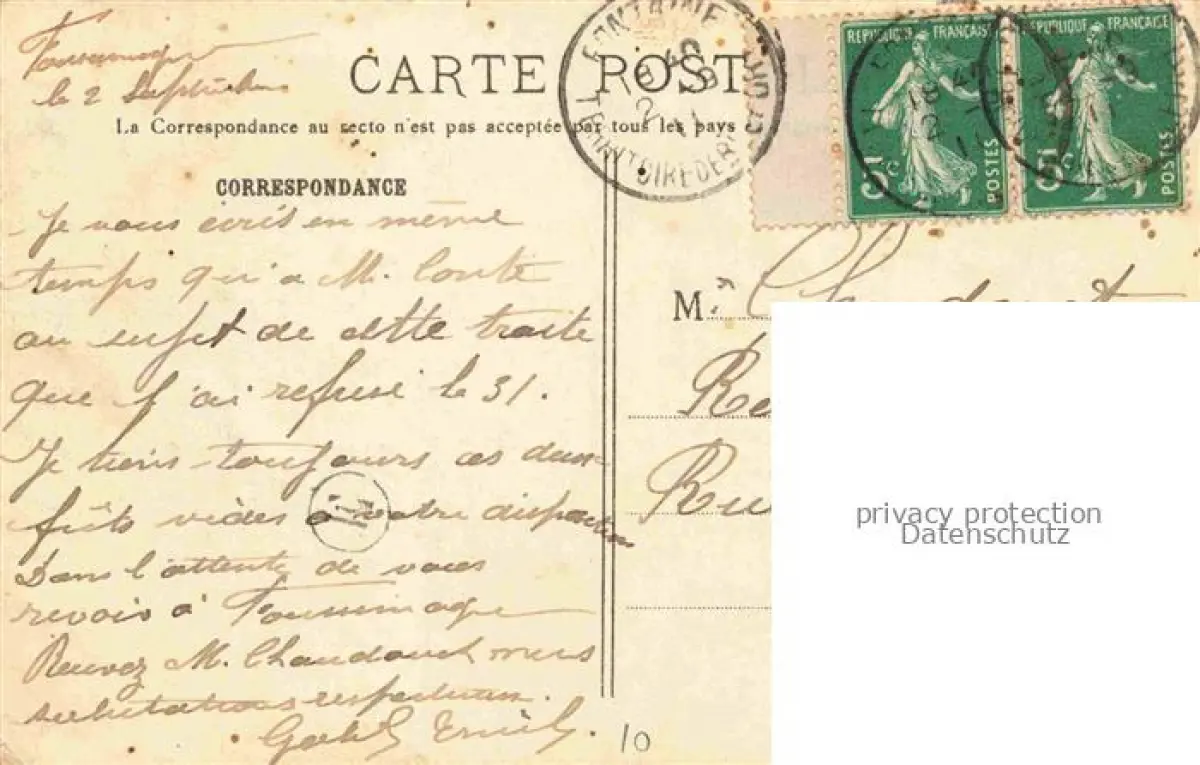 Foussemagne
le 2 Septembre
CARTE POST
La Correspondance au recto n'est pas acceptée par tous les pays
CORRESPONDANCE
Je vous ecris en même
temps qu'a M. Conte
au sujet de cette traite
que j'ai refusé le 31.
Je tiens toujours ces deux
fûts vides à votre disposition
Dans l'attente de vous
revoir à Foussemagne
Recevez M. Chaudouet mes
salutations respectueuses.
10
FONTAINE
TERRITOIRE DE BELFORT
REPUBLIQUE FRANÇAISE
5c
POSTES
REPUBLIQUE FRANÇAISE
5c
POSTES
M
Ru
privacy protection
Datenschutz